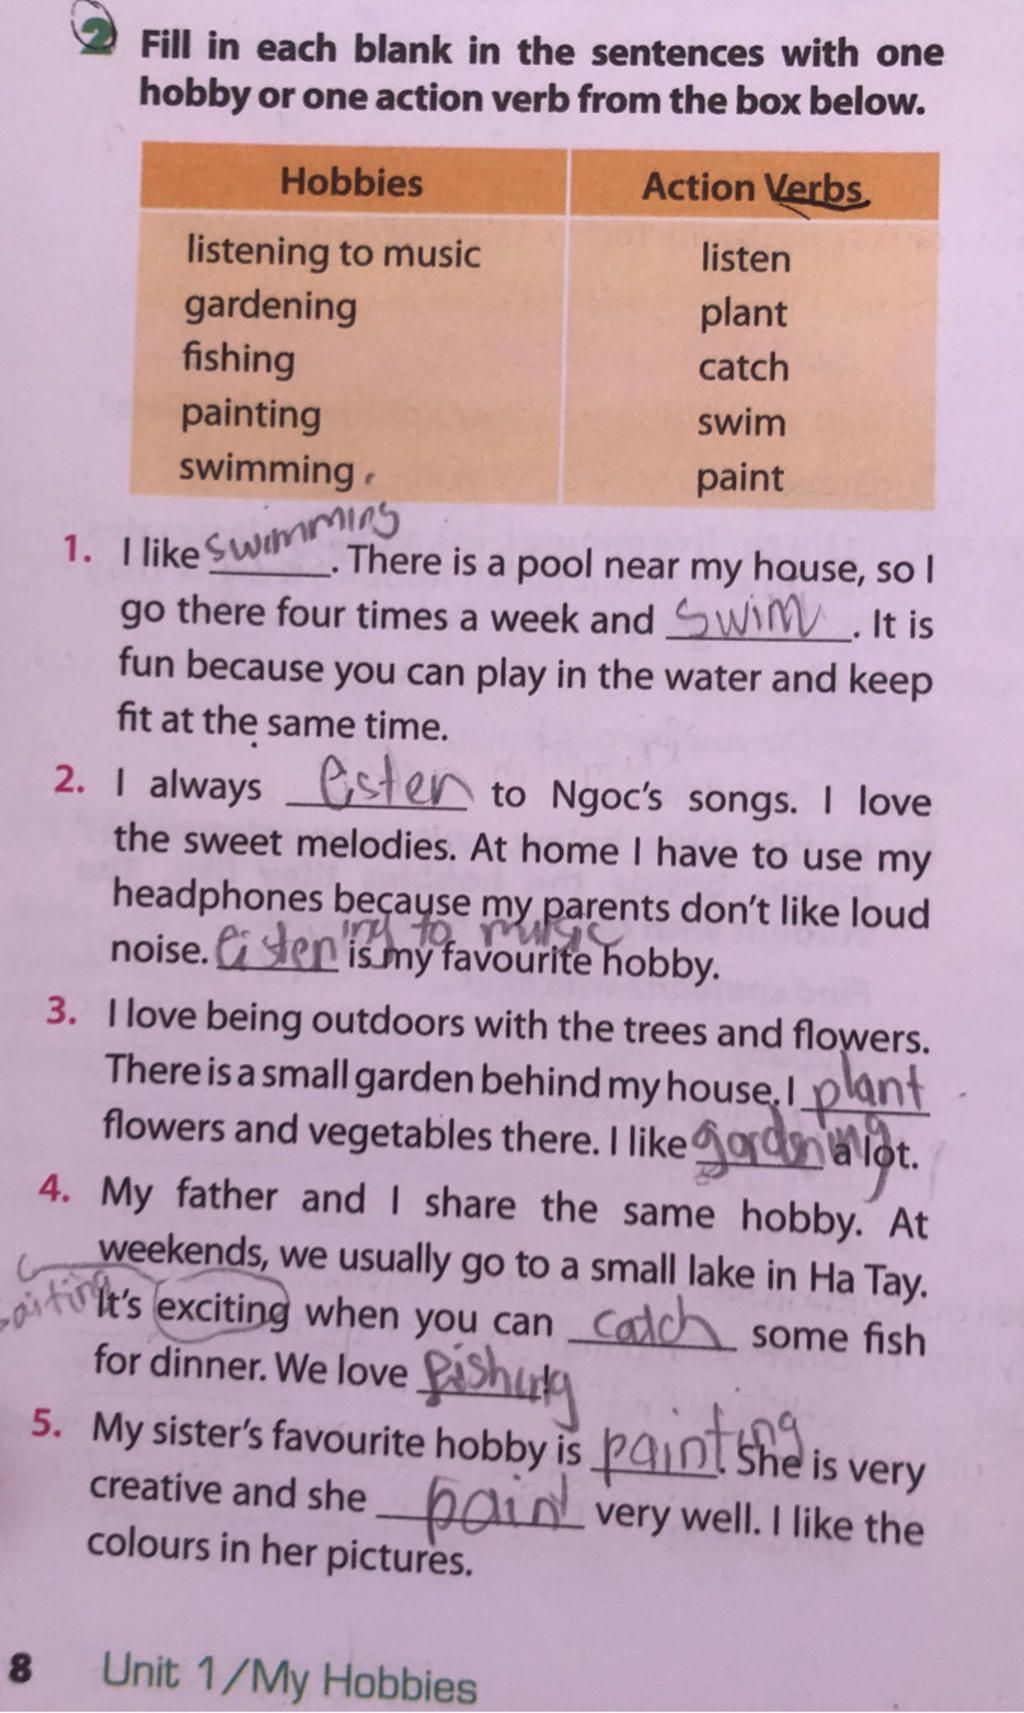 2 Fill in each blank in the sentences with one
hobby or one action verb from the box below.
Hobbies Action Verbs
listening to music listen
gardening plant
fishing catch
painting swim
swimming paint
1. I like swimming. There is a pool near my house, so I
go there four times a week and swim. It is
fun because you can play in the water and keep
fit at the same time.
2. I always listen to Ngoc's songs. I love
the sweet melodies. At home I have to use my
headphones because my parents don't like loud
noise. listening to music is my favourite hobby.
3. I love being outdoors with the trees and flowers.
There is a small garden behind my house. I plant
flowers and vegetables there. I like gardening a lot.
4. My father and I share the same hobby. At
weekends, we usually go to a small lake in Ha Tay.
It's exciting when you can catch some fish
for dinner. We love fishing!
5. My sister's favourite hobby is painting. She is very
creative and she paint very well. I like the
colours in her pictures.
8 Unit 1/My Hobbies